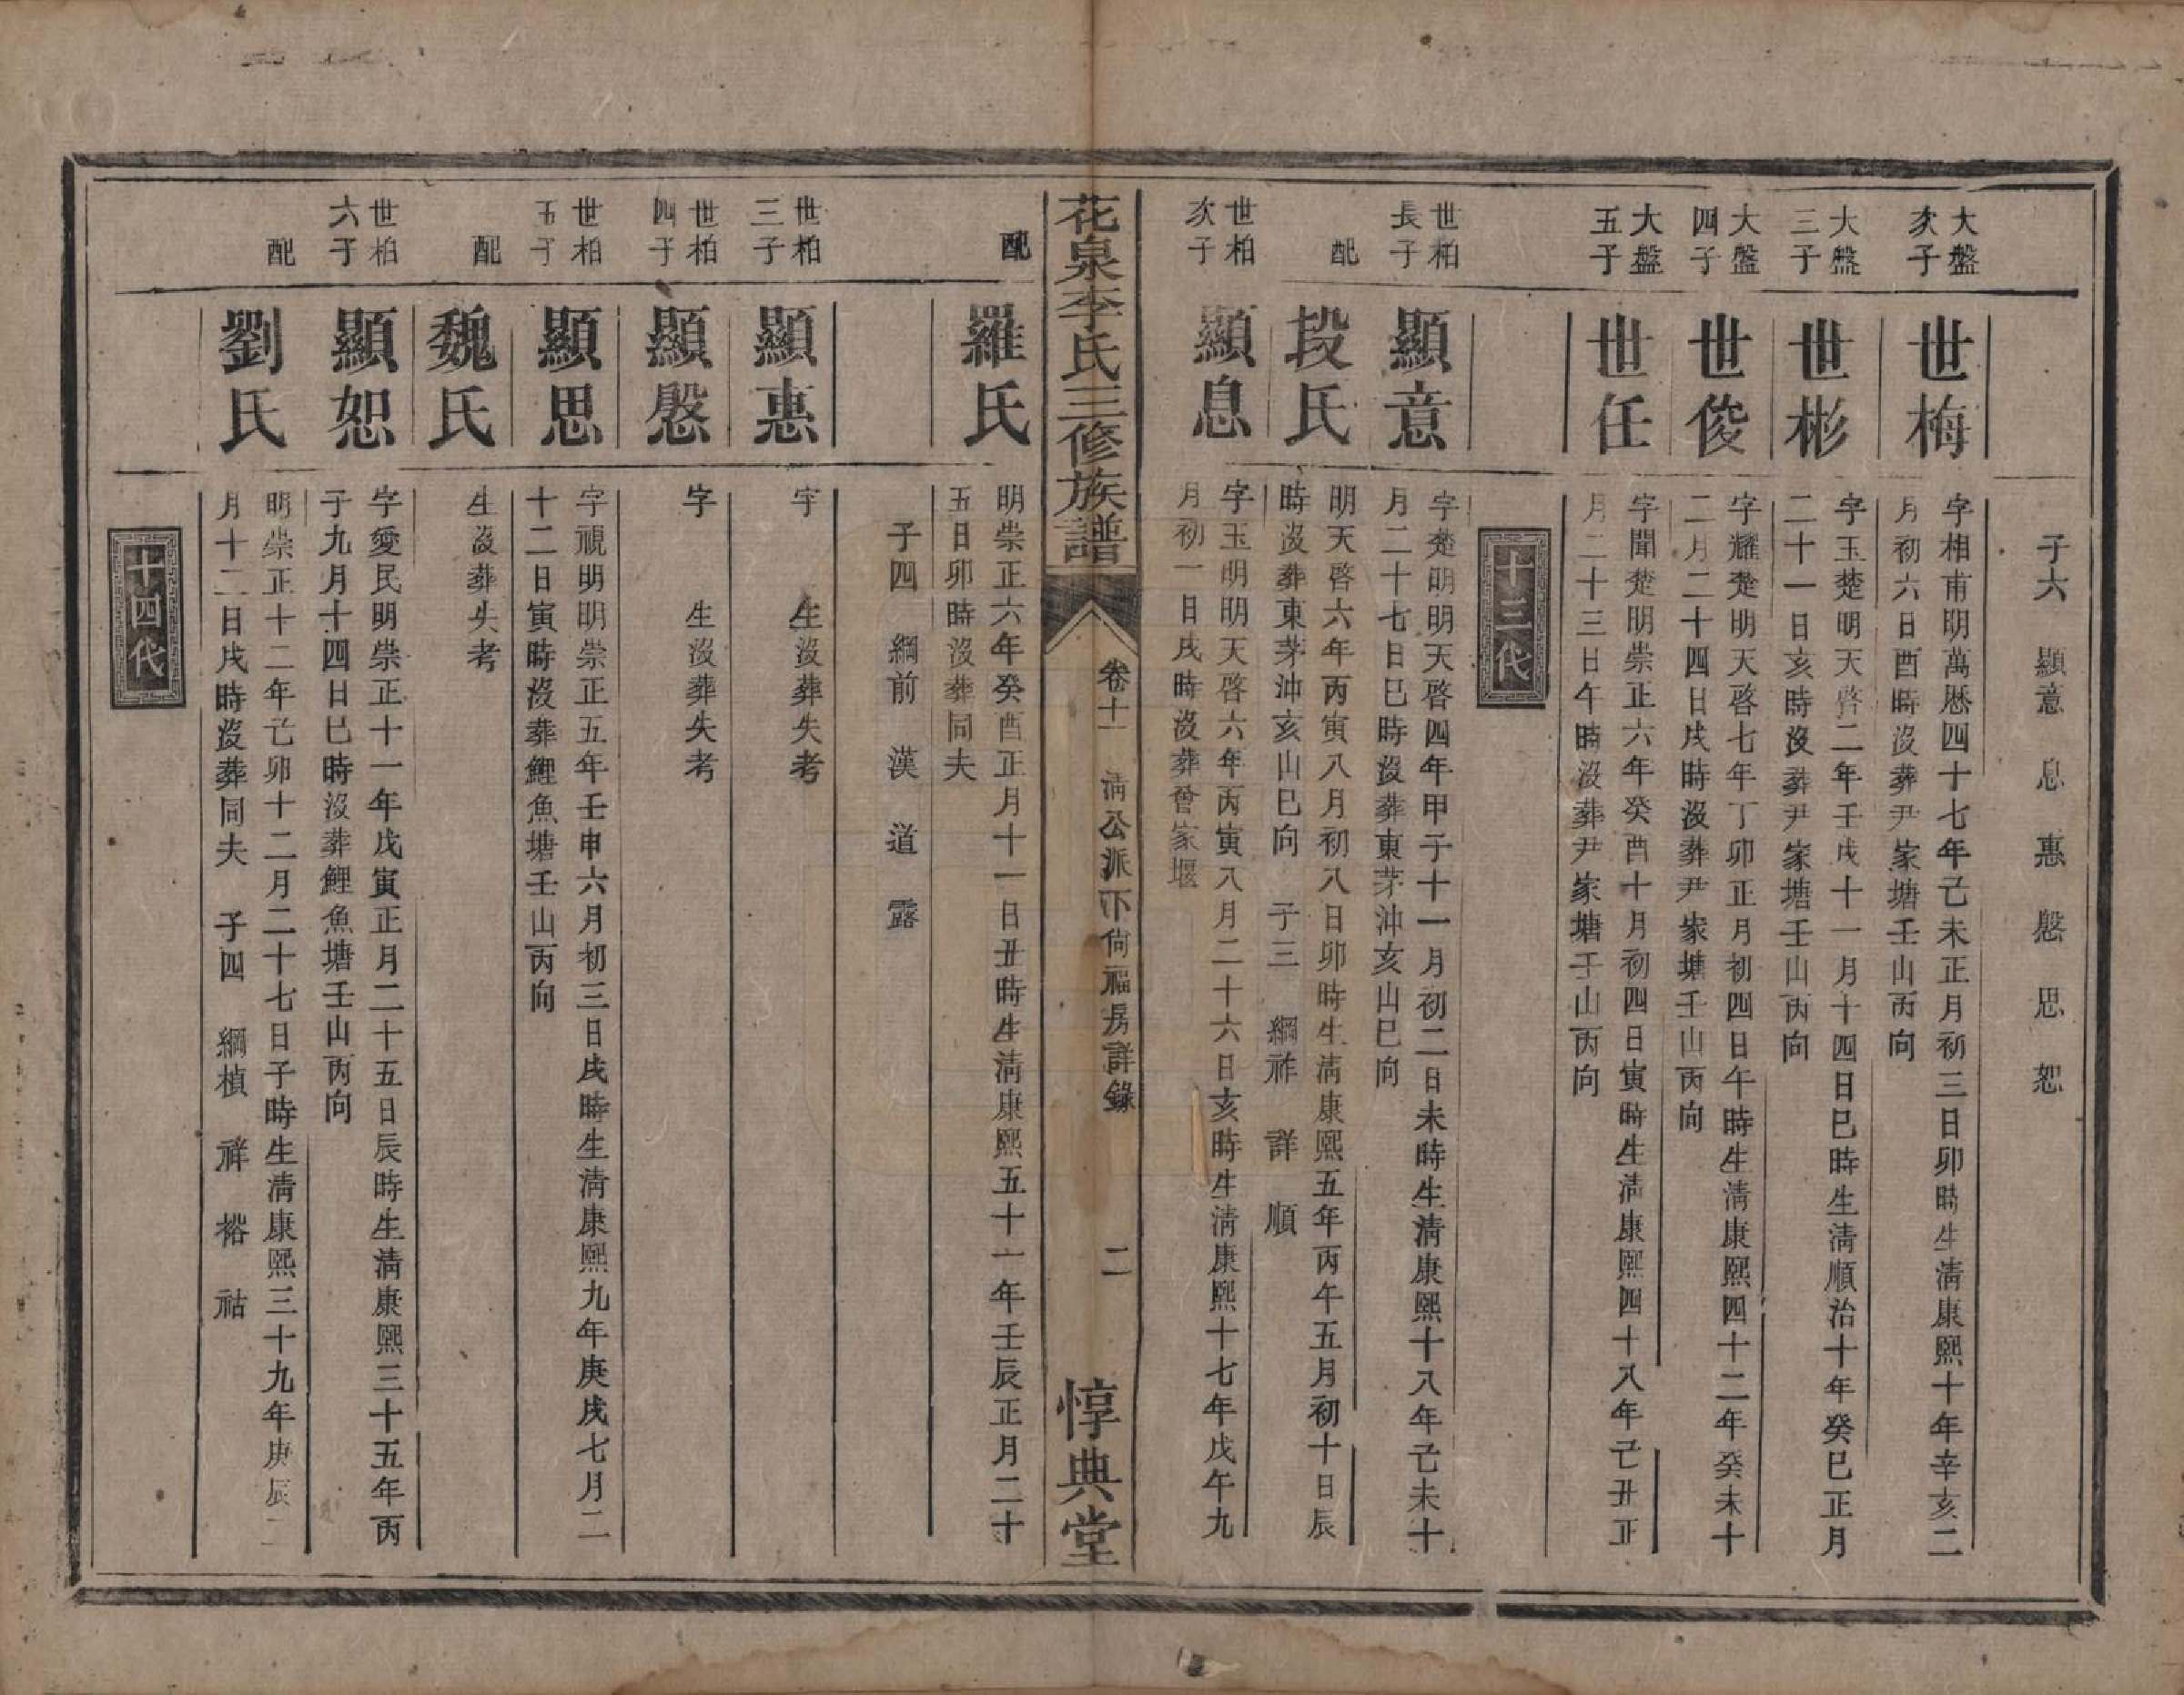 子六　顯意　息　惠　慇　思　恕
大盤
次子
世梅
字相甫明萬曆四十七年己未正月初三日卯時生淸康熙十年辛亥二
月初六日酉時沒葬尹家塘壬山丙向
大盤
三子
世彬
字玉楚明天啓二年壬戌十一月十四日巳時生淸順治十年癸巳正月
二十一日亥時沒葬尹家塘壬山丙向
大盤
四子
世俊
字耀楚明天啓七年丁卯正月初四日午時生淸康熙四十二年癸未十
二月二十四日戌時沒葬尹家塘壬山丙向
大盤
五子
世任
字聞楚明崇正六年癸酉十月初四日寅時生淸康熙四十八年己丑正
月二十三日午時沒葬尹家塘壬山丙向
十三代
世柏
長子
顯意
字楚明明天啓四年甲子十一月初二日未時生淸康熙十八年己未十
月二十七日巳時沒葬東茅沖亥山巳向
配
段氏
明天啓六年丙寅八月初八日卯時生淸康熙五年丙午五月初十日辰
時沒葬東茅沖亥山巳向　子三　綱祚　詳　順
世柏
次子
顯息
字玉明明天啓六年丙寅八月二十六日亥時生淸康熙十七年戊午九
月初一日戌時沒葬曾家堰
花泉李氏三修族譜
卷十一　淸公派下尙福房詳錄　二
惇典堂
配
羅氏
明崇正六年癸酉正月十一日丑時生淸康熙五十一年壬辰正月二十
五日卯時沒葬同夫
子四　綱前　漢　道　露
世柏
三子
顯惠
字　生沒葬失考
世柏
四子
顯慇
字　生沒葬失考
世柏
五子
顯思
字視明明崇正五年壬申六月初三日戌時生淸康熙九年庚戌七月二
十二日寅時沒葬鯉魚塘壬山丙向
配
魏氏
生沒葬失考
世柏
六子
顯恕
字愛民明崇正十一年戊寅正月二十五日辰時生淸康熙三十五年丙
子九月十四日巳時沒葬鯉魚塘壬山丙向
配
劉氏
明崇正十二年己卯十二月二十七日子時生淸康熙三十九年庚辰二
月十二日戌時沒葬同夫　子四　綱楨　祥　裕　祜
十四代